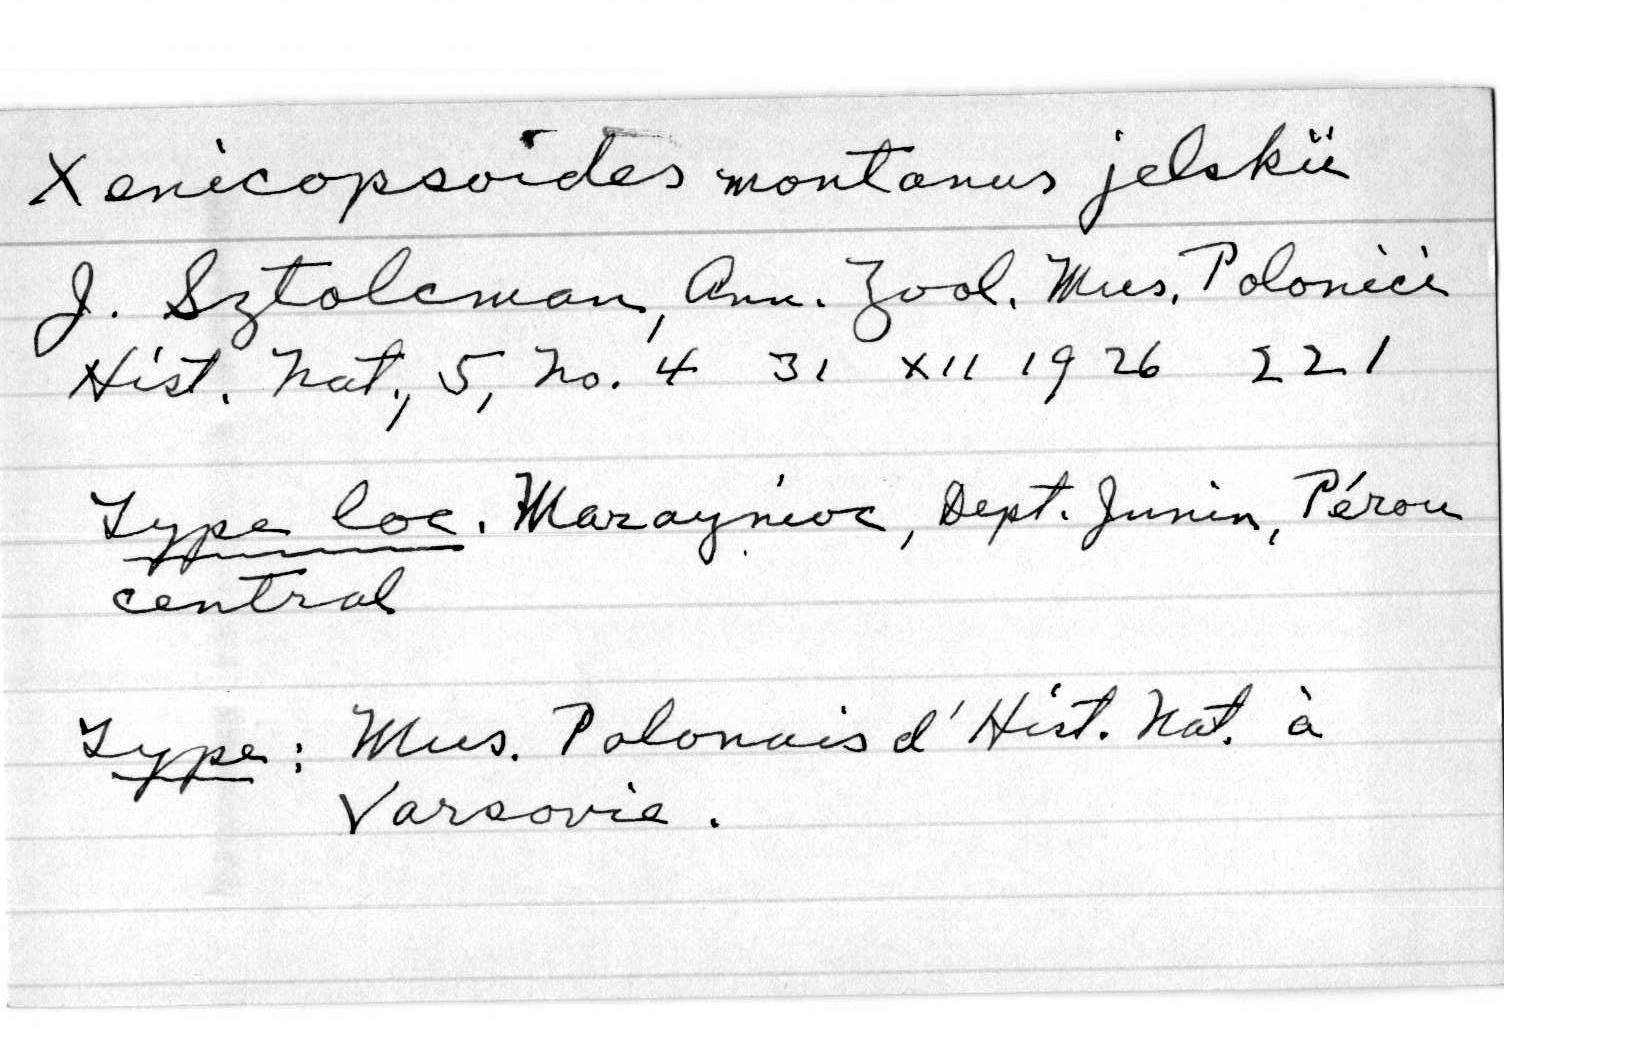 Xenicopsoides montanus jelskii
J. Sztolcman, Ann. Zool. Mus. Polonici
Hist. Nat., 5, no. 4 31 XII 1926 221
Type loc. Maraynioc, Dept. Junin, Pérou
central
Type: Mus. Polonais d'Hist. Nat. à
Varsovie.